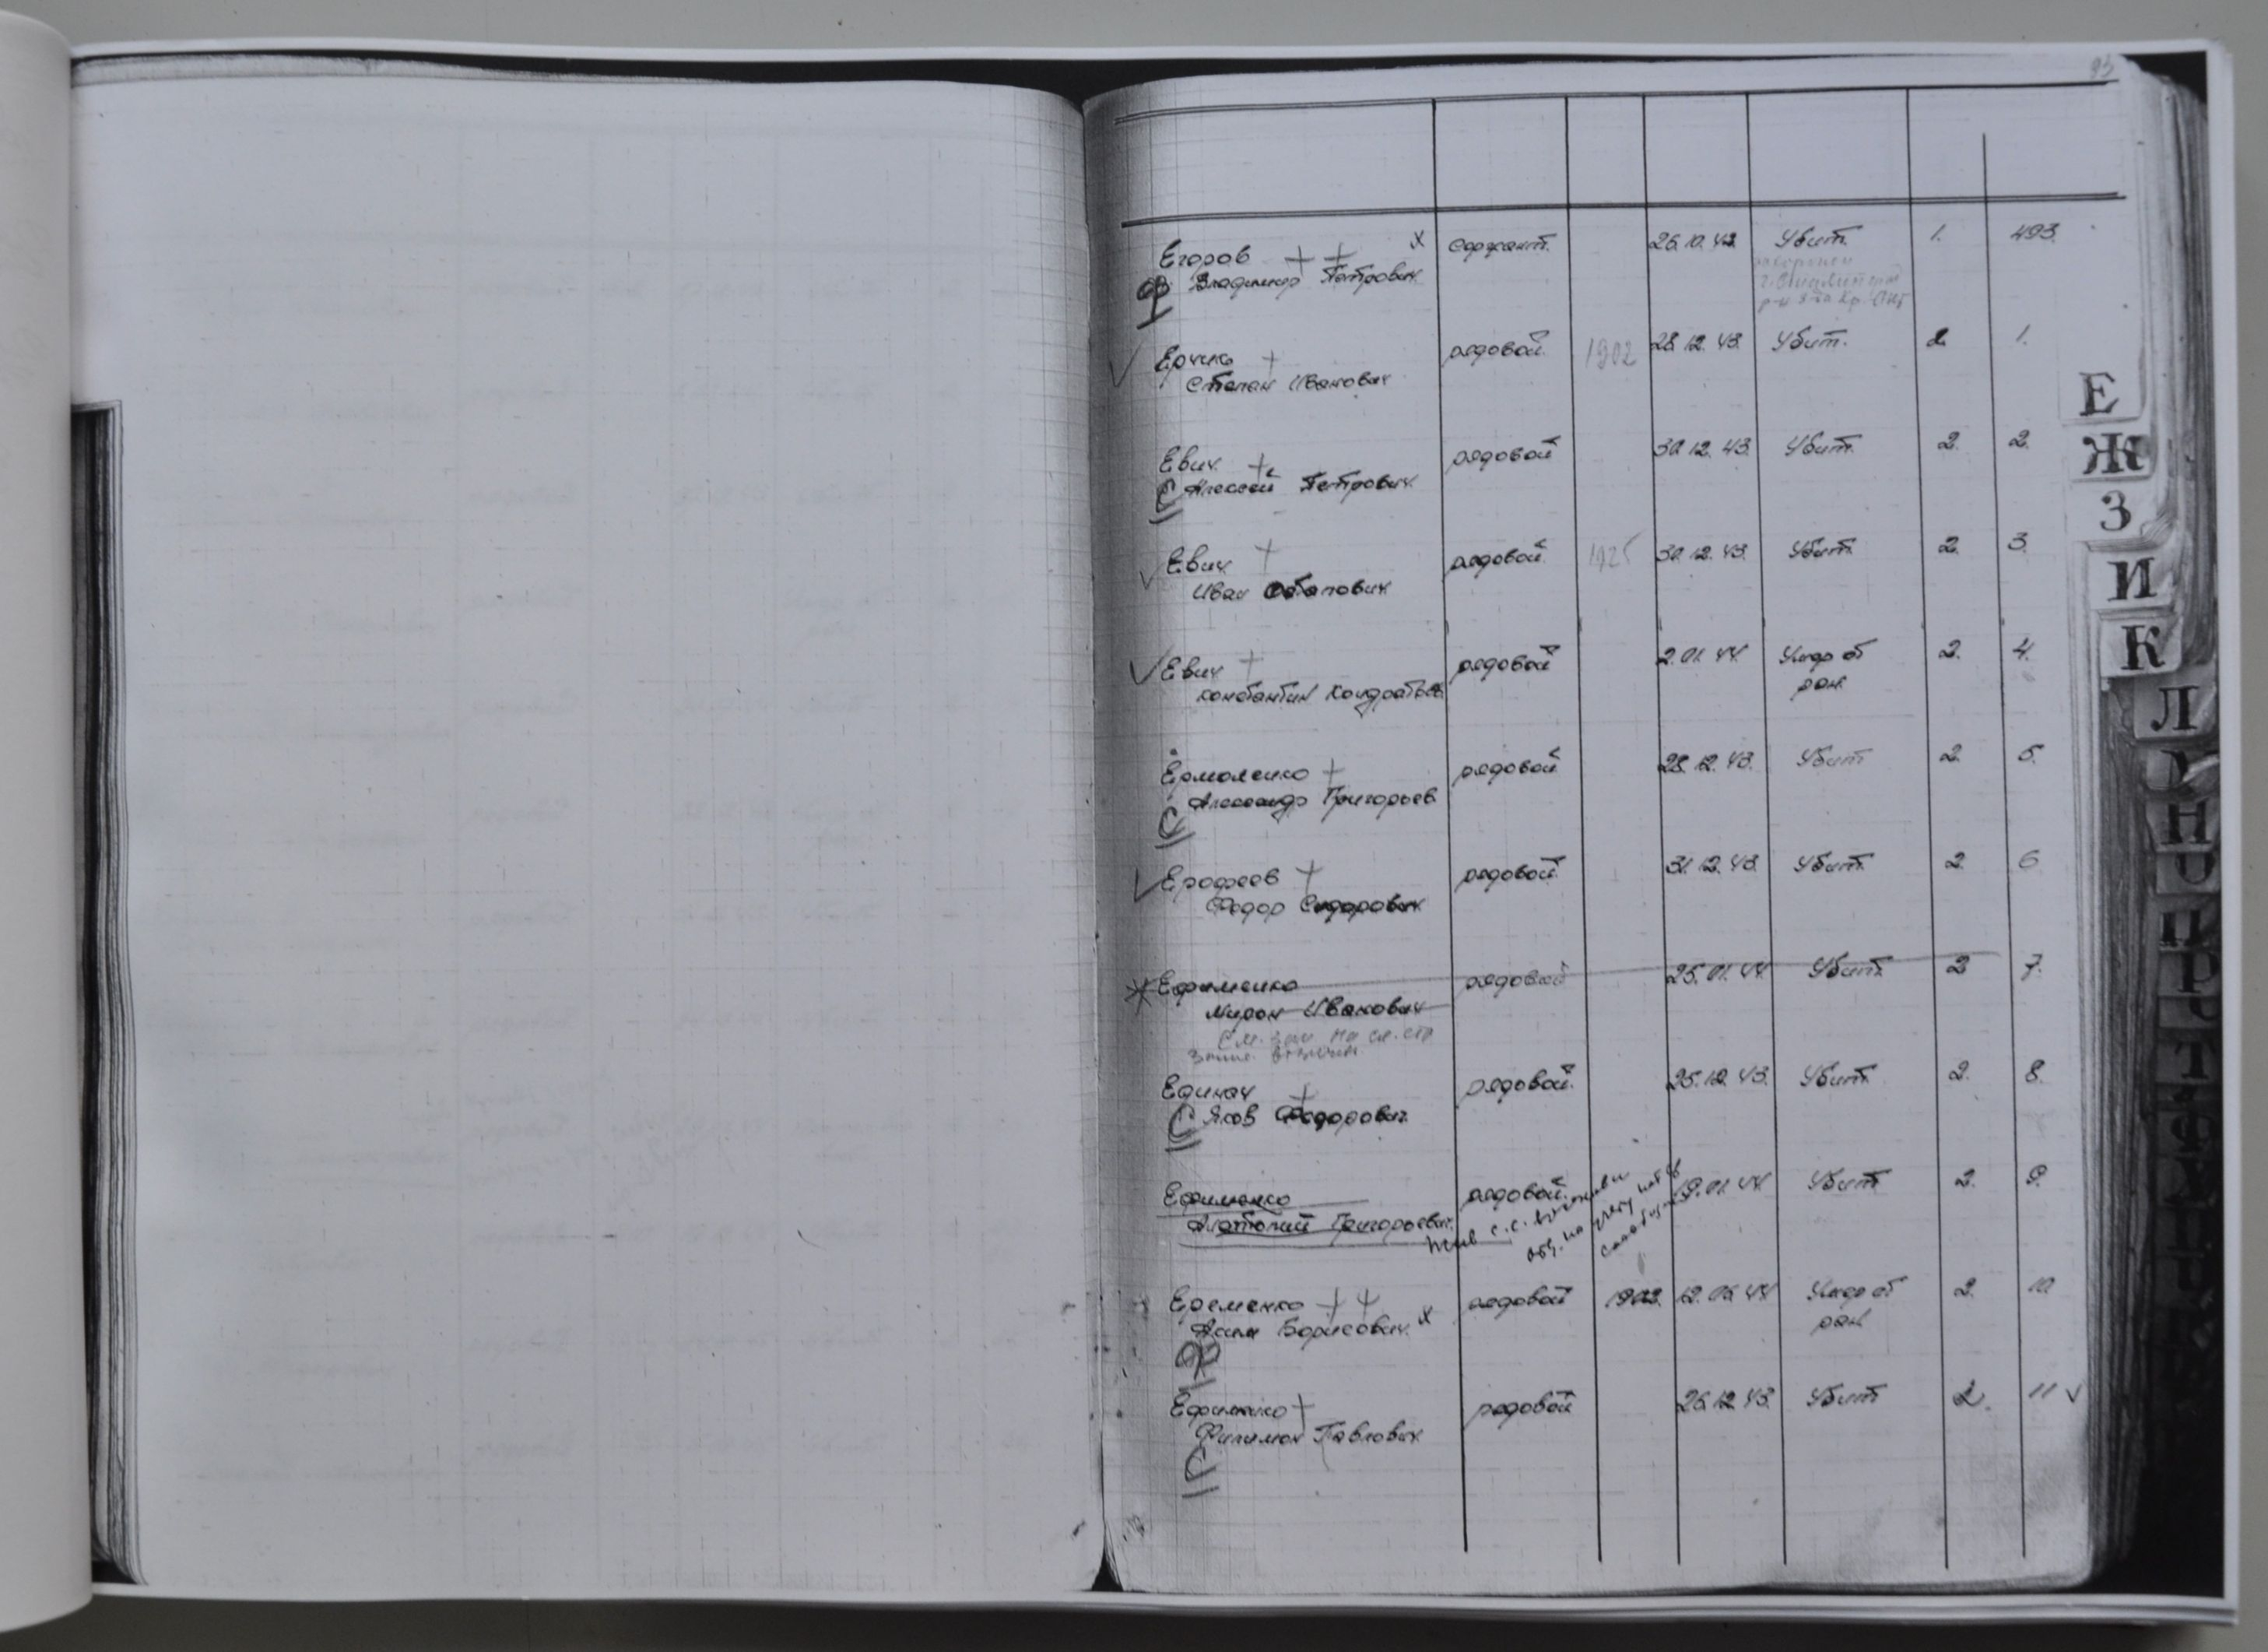 93
Егоров х сержант. 26.10.43 Убит. 1. 493.
Владимир Петрович
похоронен
р-н з-да Кр.
Ф
Степан Иванович рядовой. 1902 28.12.43. Убит. 2 1.
Евич рядовой 30.12.43. Убит. 2. 2.
С Алексей Петрович
Евич рядовой. 1925 30.12.43. Убит. 2. 3.
Иван Остапович
Евич рядовой 2.01.44. Умер от 2. 4.
Константин Кондратьев ран.
Ермоленко рядовой 28.12.43. Убит 2. 5.
Александр Григорьев
С
Ерофеев рядовой. 31.12.43. Убит. 2. 6
Федор Сидорович
Ефименко рядовой 25.01.44. Убит. 2 7.
Мирон Иванович
См. зап. на сл. стр
Единач рядовой. 25.12.43. Убит. 2. 8.
С Яков Федорович
Ефименко рядовой. 19.01.44. Убит 2. 9.
Анатолий Григорьевич.
Жив с.с.
Еременко рядовой 1903. 12.05.44 Умер от 2. 10
Аким Борисович. х ран.
Ф
Ефименко рядовой 26.12.43. Убит 2. 11
Филимон Павлович
С
Е
Ж
З
И
К
Л
Н
О
П
Р